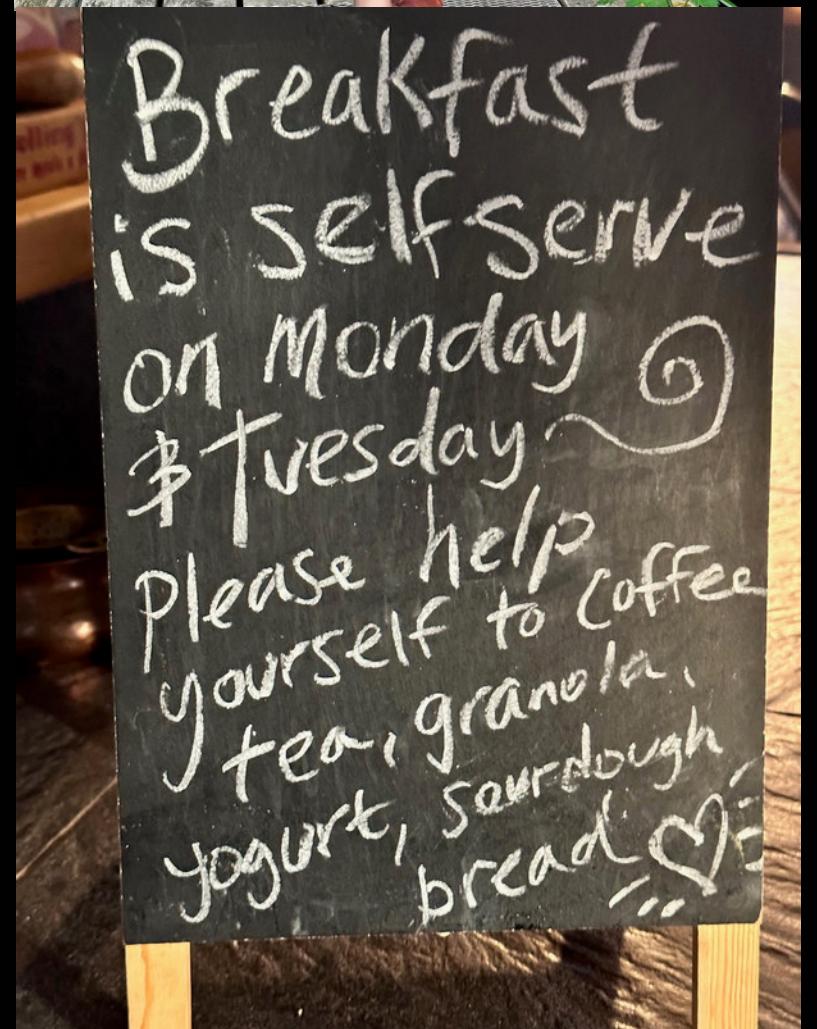 Breakfast
is self serve
on Monday
& Tuesday
Please help
yourself to coffee
tea, granola,
yogurt, sourdough
bread
elling